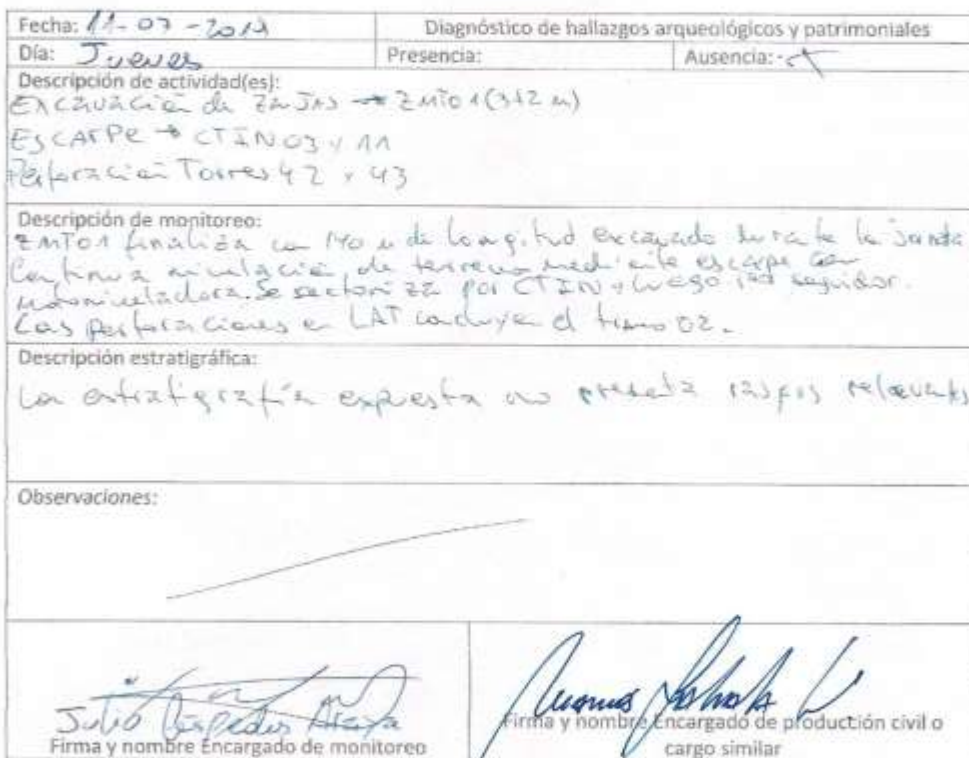 Fecha: 11-07-2019
Diagnóstico de hallazgos arqueológicos y patrimoniales
Día: Jueves
Presencia:
Ausencia:
Descripción de actividad(es):
Excavación de zanjas → ZMT01 (312 m)
Escarpe → CTIN03 y 11
Perforación Torres 42 y 43
Descripción de monitoreo:
ZMT01 finaliza con 140 m de longitud excavado durante la
Continua nivelación de terreno mediante escarpe con
motoniveladora. Se sectoriza por CTIN y luego seguidor.
Las perforaciones en LAT concluyen el tramo 02.
Descripción estratigráfica:
La estratigrafía expuesta no presenta rasgos relevantes
Observaciones:
Julio Céspedes Araya
Firma y nombre Encargado de monitoreo
Firma y nombre Encargado de producción civil o
cargo similar